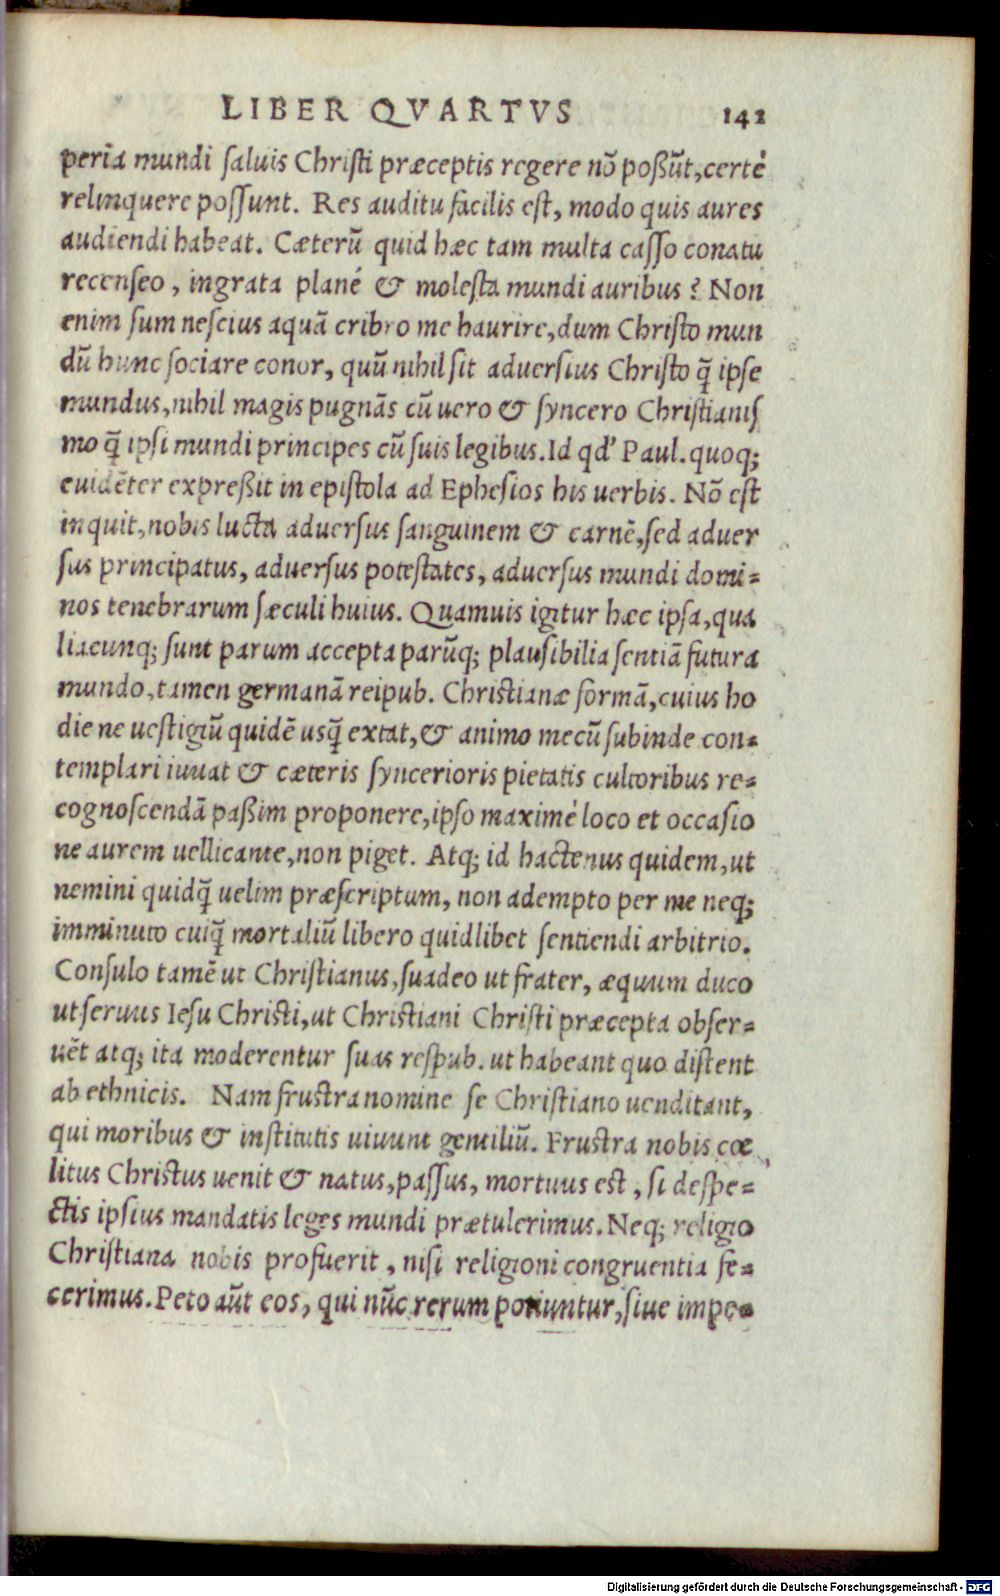 LIBER QVARTVS 142
peria mundi saluis Christi præceptis regere nõ poßũt, certè
relinquere possunt. Res auditu facilis est, modo quis aures
audiendi habeat. Cæterũ quid hæc tam multa casso conatu
recenseo, ingrata plané & molesta mundi auribus? Non
enim sum nescius aquã cribro me haurire, dum Christo mun
dũ hunc sociare conor, quũ nihil sit aduersius Christo q̃ ipse
mundus, nihil magis pugnãs cũ uero & syncero Christianis
mo q̃ ipsi mundi principes cũ suis legibus. Id qd' Paul. quoq;
euidẽter expreßit in epistola ad Ephesios his uerbis. Nõ est
inquit, nobis lucta aduersus sanguinem & carnẽ, sed aduer
sus principatus, aduersus potestates, aduersus mundi domi=
nos tenebrarum sæculi huius. Quamuis igitur hæc ipsa, qua
liacunq; sunt parum accepta parũq; plausibilia sentiã futura
mundo, tamen germanã reipub. Christianæ formã, cuius ho
die ne uestigiũ quidẽ usq̃ extat, & animo mecũ subinde con=
templari iuuat & cæteris syncerioris pietatis cultoribus re=
cognoscendã paßim proponere, ipso maximè loco et occasio
ne aurem uellicante, non piget. Atq; id hactenus quidem, ut
nemini quidq̃ uelim præscriptum, non adempto per me neq;
imminuto cuiq̃ mortaliũ libero quidlibet sentiendi arbitrio.
Consulo tamẽ ut Christianus, suadeo ut frater, æquum duco
ut seruus Iesu Christi, ut Christiani Christi præcepta obser=
uẽt atq; ita moderentur suas respub. ut habeant quo distent
ab ethnicis. Nam frustra nomine se Christiano uenditant,
qui moribus & institutis uiuunt gentiliũ. Frustra nobis cœ
litus Christus uenit & natus, passus, mortuus est, si despe=
ctis ipsius mandatis leges mundi prætulerimus. Neq; religio
Christiana nobis profuerit, nisi religioni congruentia fe=
cerimus. Peto aũt eos, qui nũc rerum potiuntur, siue impe=
Digitalisierung gefördert durch die Deutsche Forschungsgemeinschaft - DFG